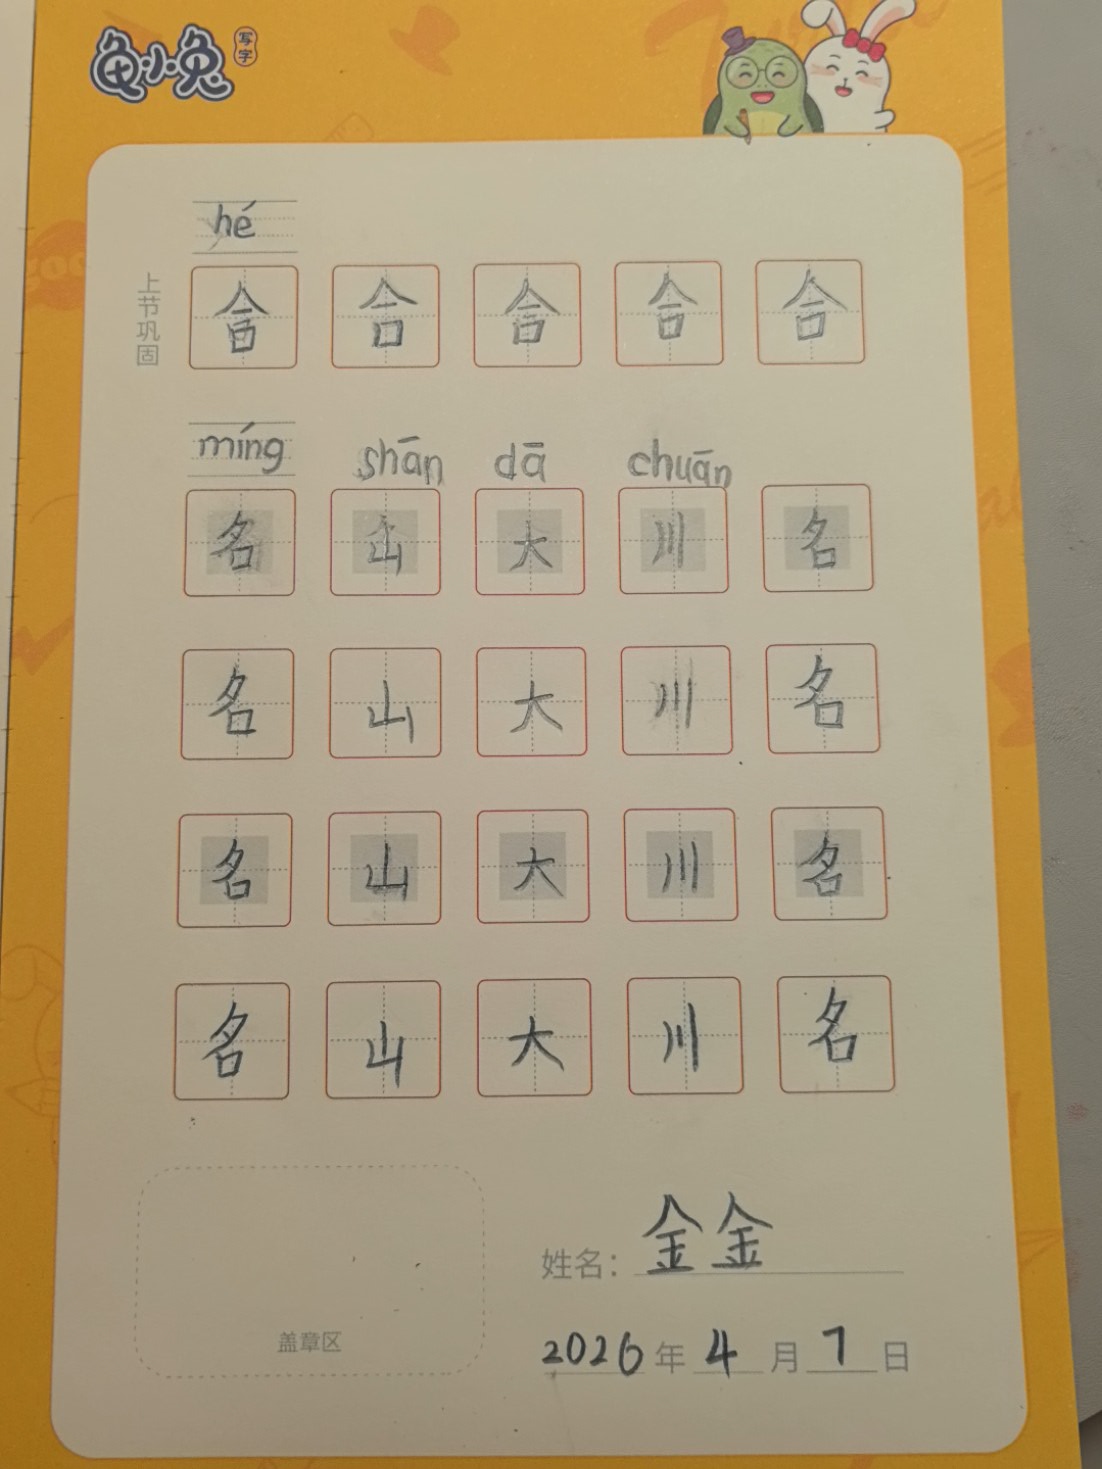 龟小兔 写字
hé
上节巩固
合 合 合 合 合
míng shān dā chuān
名 山 大 川 名
名 山 大 川 名
名 山 大 川 名
名 山 大 川 名
盖章区
姓名：金金
2026年4月7日